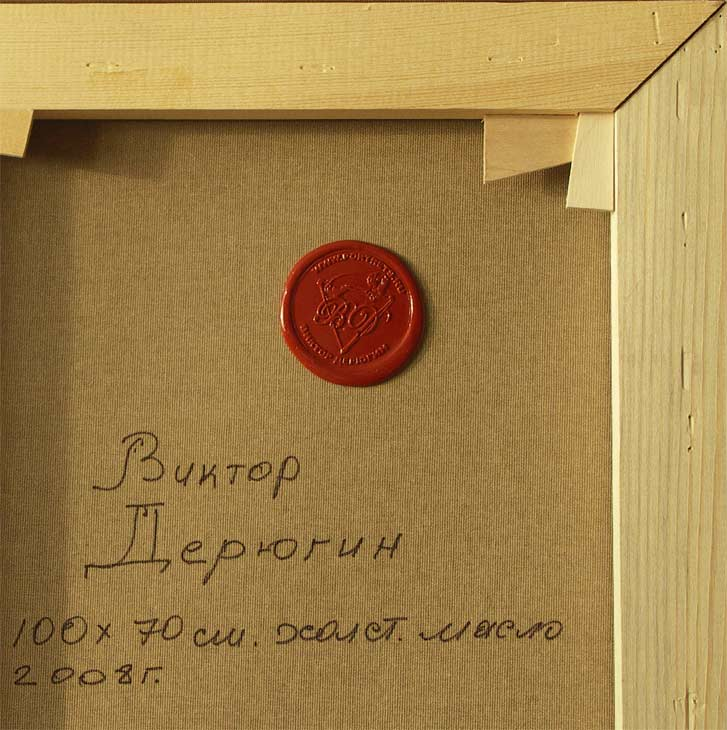 ВД
ВИКТОР ДЕРЮГИН
Виктор
Дерюгин
100х 70 см. холст. масло
2008г.